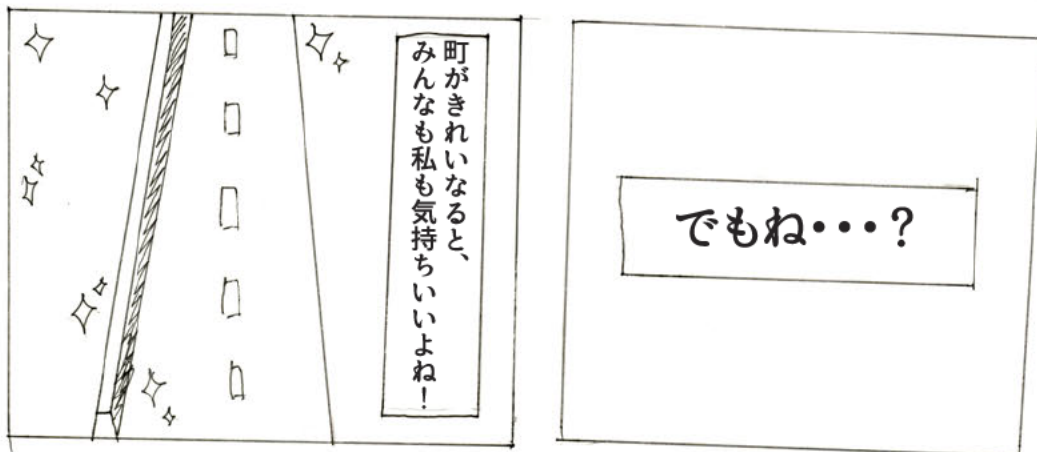 町がきれいなると、
みんなも私も気持ちいいよね！
でもね・・・？